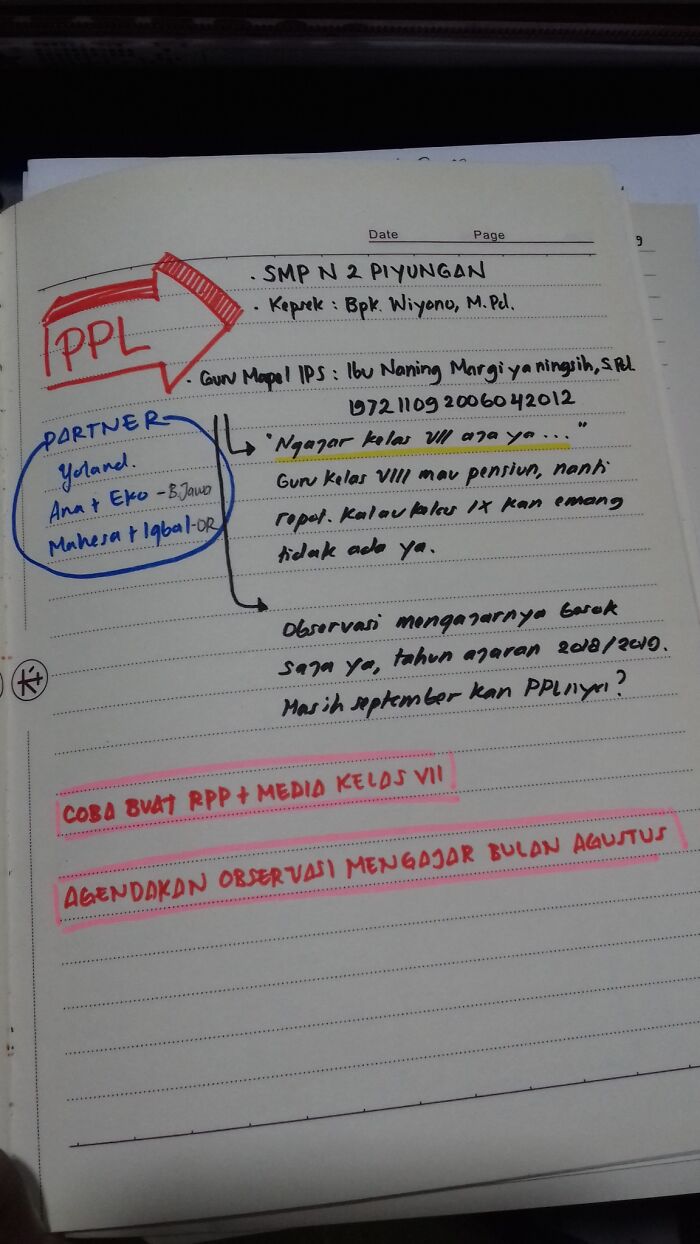 Date Page
9
PPL
· SMP N 2 PIYUNGAN
· Kepsek : Bpk. Wiyono, M.Pd.
· Guru Mapel IPS : Ibu Naning Margiyaningsih, S.Pd.
197211092006042012
PARTNER
Yoland.
Ana + Eko - B.Jawa
Mahesa + Iqbal - OR
"Ngajar kelas VII aja ya ..."
Guru kelas VIII mau pensiun, nanti
repot. Kalau kelas IX kan emang
tidak ada ya.
Observasi mengajarnya besok
saja ya, tahun ajaran 2018/2019.
Masih september kan PPLnya?
K+
COBA BUAT RPP + MEDIA KELAS VII
AGENDAKAN OBSERVASI MENGAJAR BULAN AGUSTUS